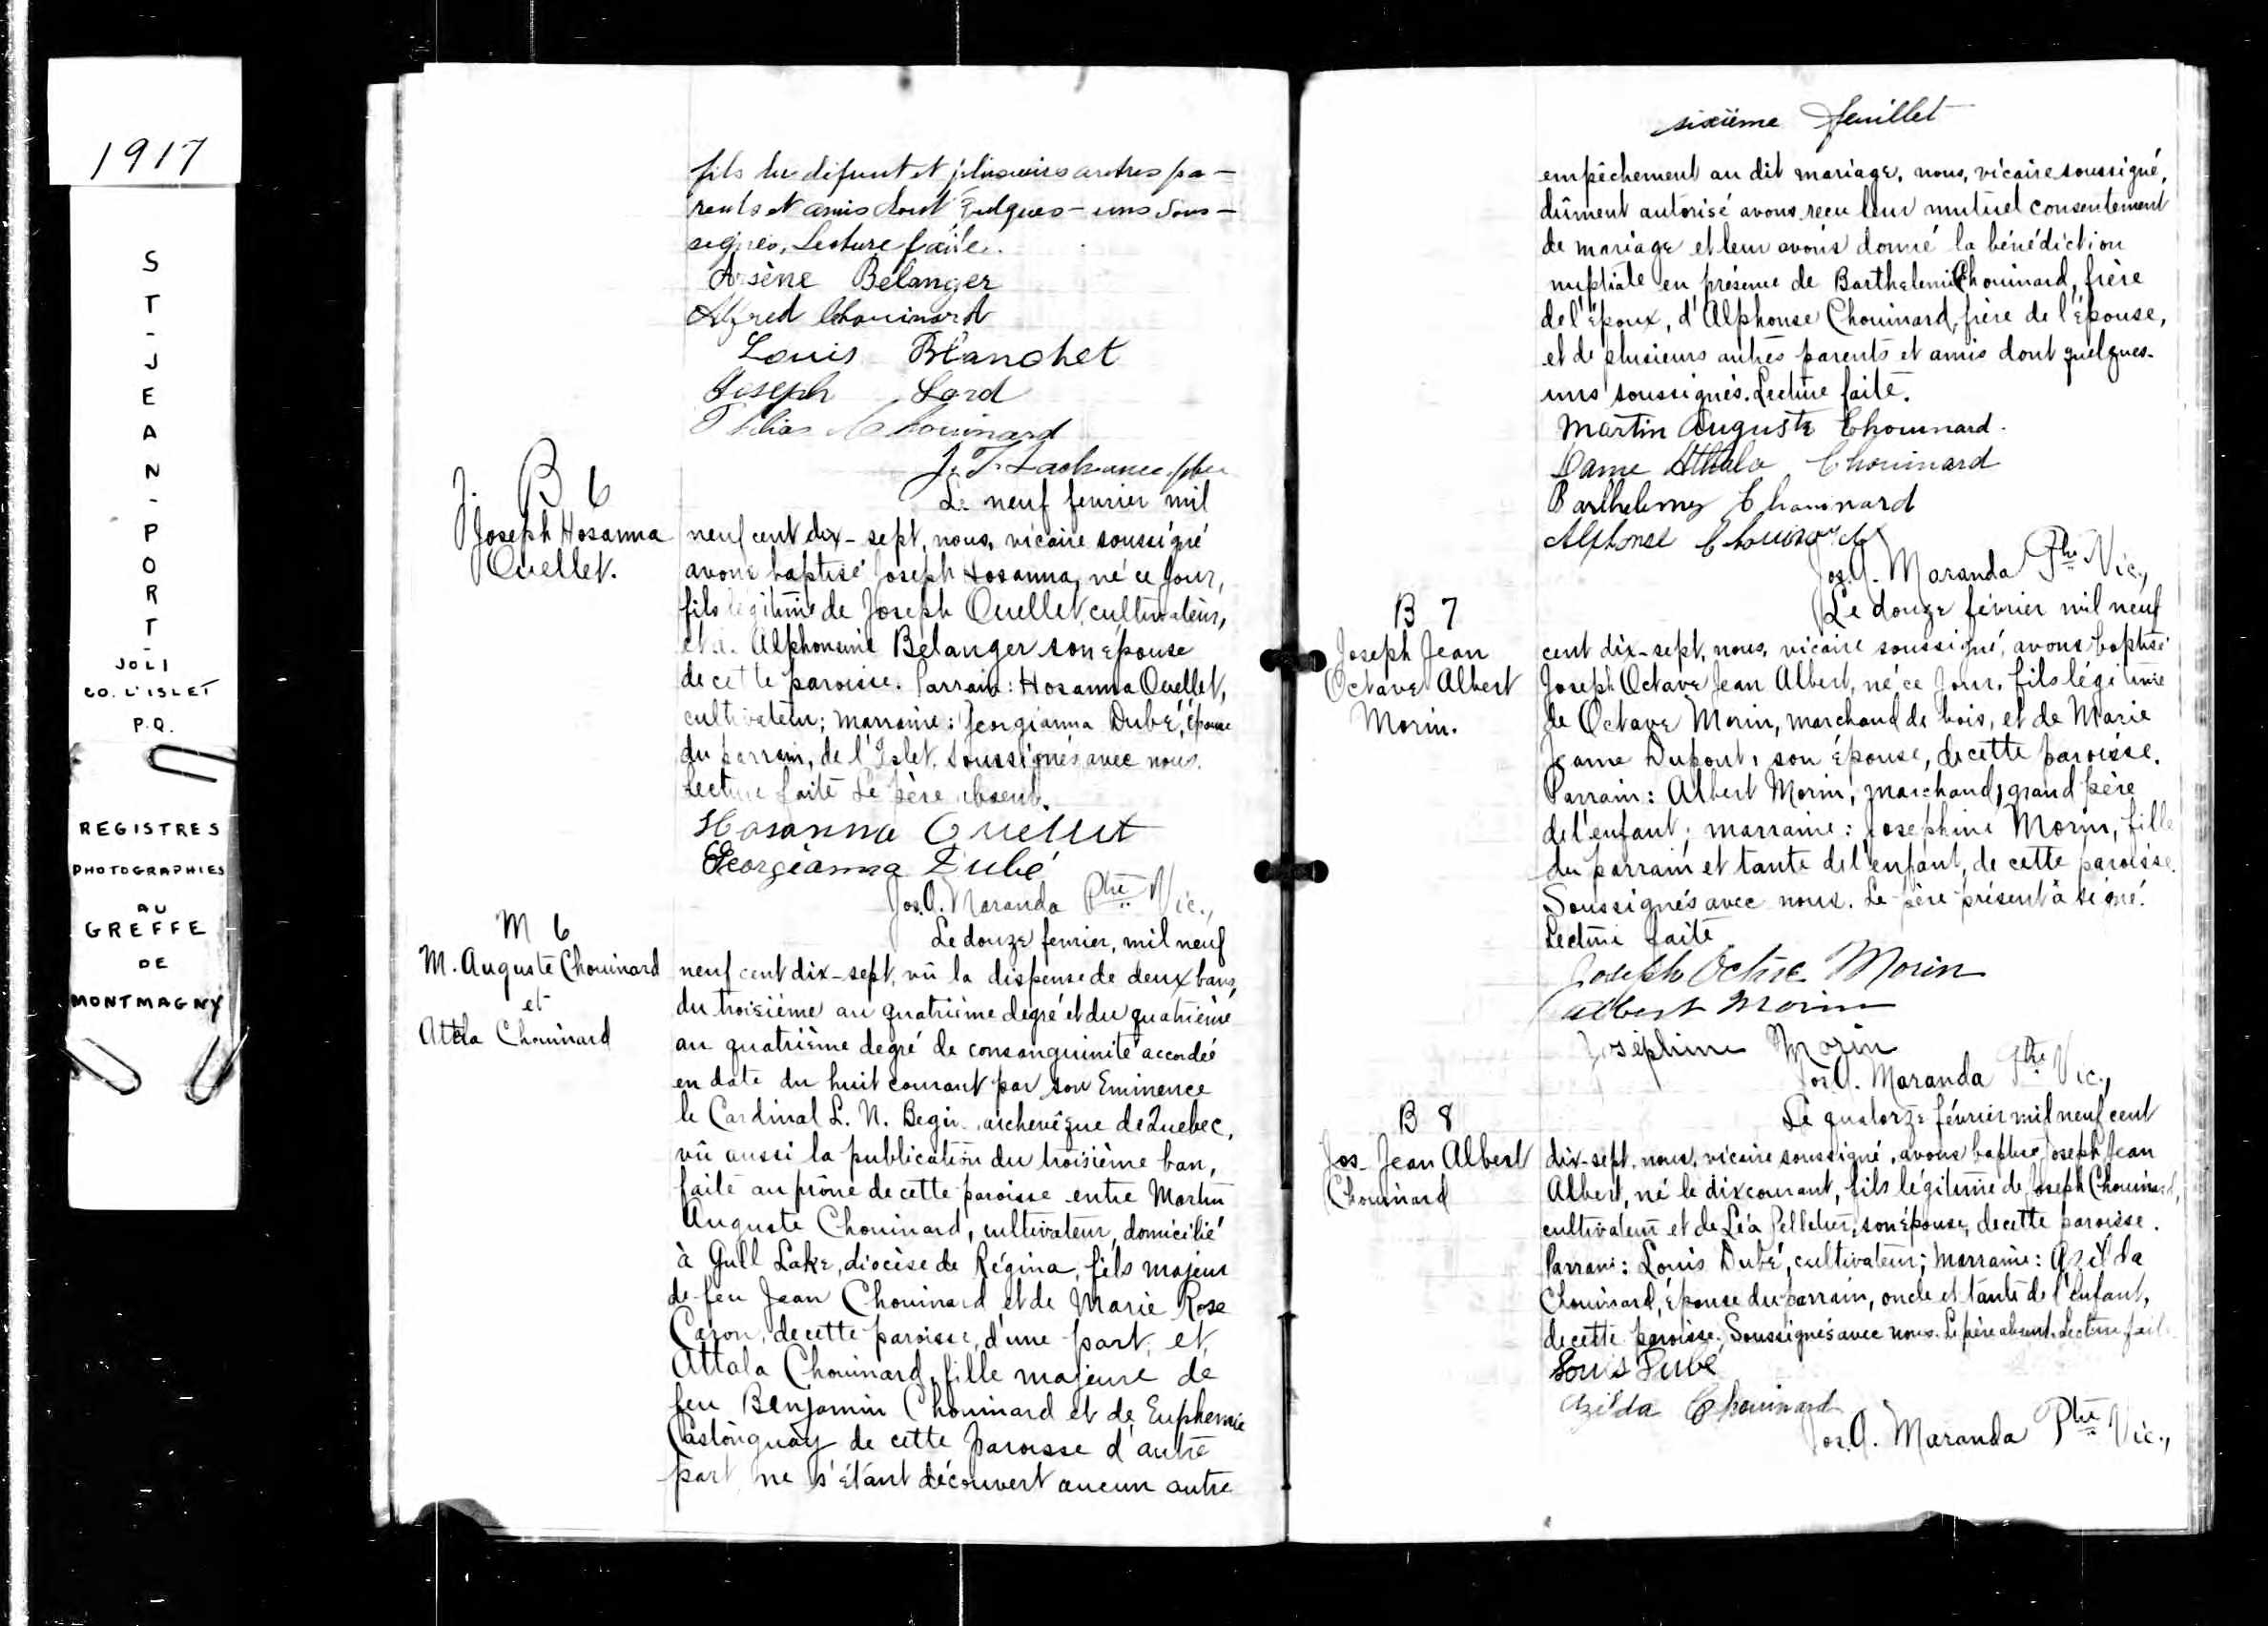 1917
S
T
-
J
E
A
N
-
P
O
R
T
-
JOLI
CO. L'ISLET
P.Q.
REGISTRES
PHOTOGRAPHIES
AU
GREFFE
DE
MONTMAGNY
fils du défunt et plusieurs autres pa-
rents et amis dont quelques-uns sous-
signés, Lecture faite.
Arsène Bélanger
Alfred Chouinard
Louis Blanchet
Joseph Lord
Chouinard
J. T. Lachance ptre
B 6
Joseph Hosanna
Ouellet.
Le neuf fevrier mil
neuf cent dix-sept, nous, vicaire soussigné
avons baptisé Joseph Hosanna, né ce jour,
fils légitime de Joseph Ouellet, cultivateur,
et de Alphonsine Bélanger son épouse
de cette paroisse. Parrain: Hosanna Ouellet,
cultivateur; marraine: Georgianna Dubé, épouse
du parrain, de l'Islet. Soussignés avec nous.
Lecture faite Le père absent.
Hosanna Ouellet
Georgianna Dubé
Jos. A. Maranda Ptre Vic.,
M 6
M. Auguste Chouinard
et
Attala Chouinard
Le douze fevrier, mil neuf
neuf cent dix-sept, vû la dispense de deux bans,
du troisième au quatrième degré et du quatrième
au quatrième degré de consanguinité accordée
en date du huit courant par son Eminence
le Cardinal L. N. Begin, archevêque de Quebec,
vû aussi la publication du troisième ban,
faite au prône de cette paroisse entre Martin
Auguste Chouinard, cultivateur, domicilié
à Gull Lake, diocèse de Régina, fils majeur
de feu Jean Chouinard et de Marie Rose
Caron, de cette paroisse, d'une part, et
Attala Chouinard, fille majeure de
feu Benjamin Chouinard et de Euphemie
Castonguay de cette paroisse d'autre
part ne s'étant découvert aucun autre
sixième feuillet
empêchement au dit mariage, nous, vicaire soussigné,
dûment autorisé avons reçu leur mutuel consentement
de mariage et leur avons donné la bénédiction
nuptiale en présence de Barthelemi Chouinard, frère
de l'époux, d'Alphonse Chouinard, frère de l'épouse,
et de plusieurs autres parents et amis dont quelques-
uns soussignés. Lecture faite.
Martin Auguste Chouinard.
Dame Attala Chouinard
Barthelemy Chouinard
Alphonse Chouinard
Jos. A. Maranda Ptre Vic.,
B 7
Joseph Jean
Octave Albert
Morin.
Le douze février mil neuf
cent dix-sept, nous, vicaire soussigné, avons baptisé
Joseph Octave Jean Albert, né ce jour, fils légitime
de Octave Morin, marchand de bois, et de Marie
Jeanne Dupont, son épouse, de cette paroisse.
Parrain: Albert Morin, marchand, grand père
de l'enfant; marraine: Josephine Morin, fille
du parrain et tante de l'enfant, de cette paroisse.
Soussignés avec nous. Le père présent a signé.
Lecture faite
Joseph Octave Morin
Albert Morin
Joséphine Morin
Jos. A. Maranda Ptre Vic.,
B 8
Jos. Jean Albert
Chouinard
Le quatorze février mil neuf cent
dix-sept, nous, vicaire soussigné, avons baptisé Joseph Jean
Albert, né le dix courant, fils légitime de Joseph Chouinard,
cultivateur et de Léa Pelletier, son épouse, de cette paroisse.
Parrain: Louis Dubé, cultivateur; marraine: Azilda
Chouinard, épouse du parrain, oncle et tante de l'enfant,
de cette paroisse. Soussignés avec nous. Le père absent. Lecture faite
Louis Dubé
Azilda Chouinard
Jos. A. Maranda Ptre Vic.,